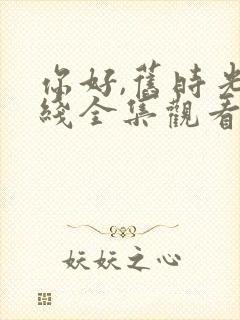 你好,舊時光
綫全集觀看
妖妖之心